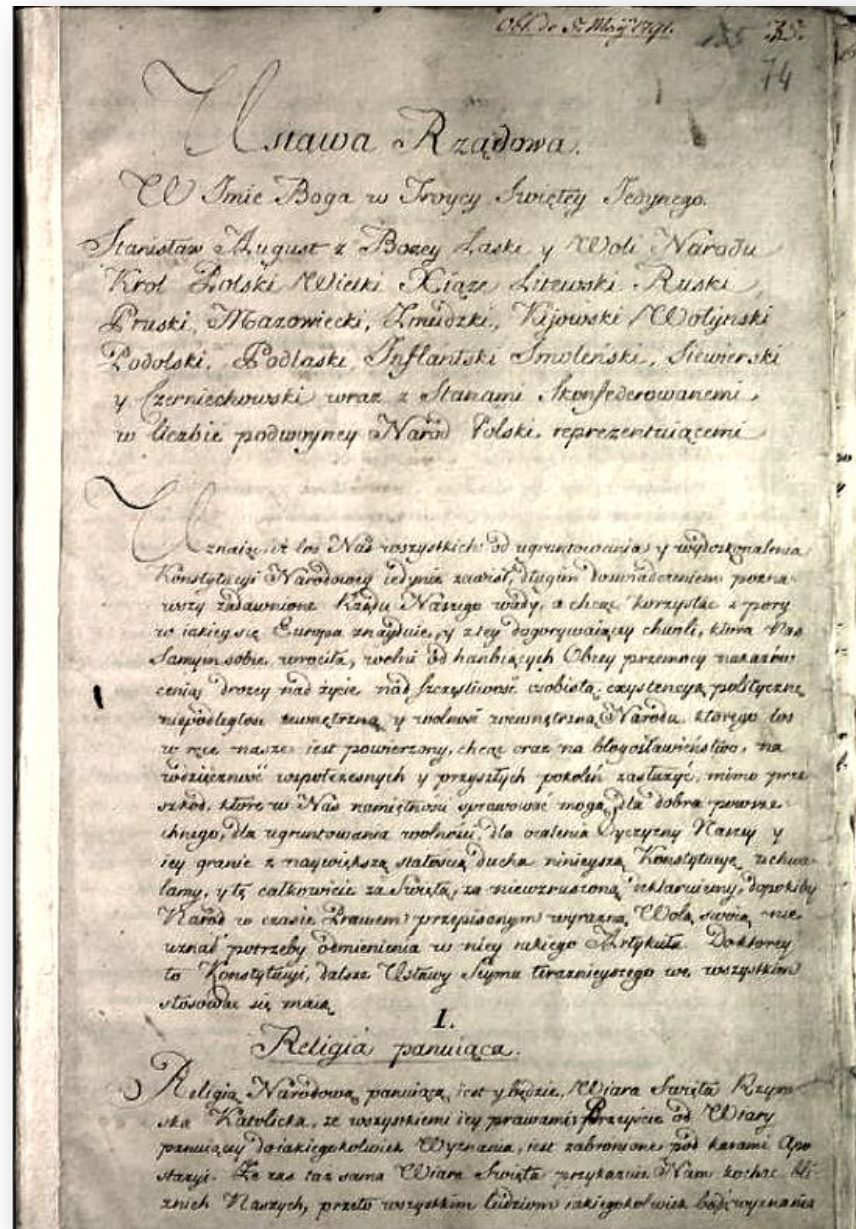 Obl. de 5. Maij 1791.
74
Ustawa Rządowa.
W Imie Boga w Troycy Swiętey Jedynego.
Stanisław August z Bozey Łaski y Woli Narodu
Krol Polski Wielki Xiąze Litewski Ruski
Pruski, Mazowiecki, Zmudzki, Kijowski Wołynski
Podolski, Podlaski, Inflantski Smoleński, Siewierski
y Czerniechowski wraz z Stanami Skonfederowanemi,
w liczbie podwoyney Naród Polski reprezentuiącemi
Uznaiąc, iż los Nas wszystkich od ugruntowania y wydoskonalenia
Konstytucyi Narodowey iedynie zawisł, długim doswiadczeniem pozna-
wszy zadawnione Rządu Naszego wady, a chcąc korzystać z pory
w iakiey się Europa znayduie, y z tey dogorywaiącey chwili, ktora Nas
Samym sobie wrociła, wolni od hanbiących Obcey przemocy nakazów
ceniąc drozey nad życie, nad szczęsliwość osobistą, exystencyą polityczną
niepodległosc zewnętrzną y wolność wewnętrzną Narodu, ktorego los
w ręce nasze iest powierzony, chcąc oraz na błogosławieństwo, na
wdzięczność wspołczesnych y przyszłych pokoleń zasłużyć, mimo prze-
szkód, ktore w Nas namiętności sprawować mogą, dla dobra powsze-
chnego, dla ugruntowania wolności, dla ocalenia Oyczyzny Naszey y
iey granic z naywiększą stałością ducha ninieyszą Konstytucyę uchwa-
lamy, y tę całkowicie za Swiętą, za niewzruszoną deklaruiemy, dopokiby
Naród w czasie Prawem przepisanym wyrazną Wolą swoią nie
uznał potrzeby odmienienia w niey iakiego Artykułu. Do ktorey
to Konstytucyi, dalsze Ustawy Seymu teraznieyszego we wszystkim
stósować się maią
I.
Religia panuiąca.
Religią Narodową panuiącą iest y będzie, Wiara Swięta Rzym-
ska Katolicka, ze wszystkiemi iey prawami. Przeyście od Wiary
panuiącey do iakiegokolwiek Wyznania, iest zabronione pod karami Apo-
stazyi. Ze zas taz sama Wiara Swięta przykazuie Nam kochać bli-
znich Naszych, przeto wszystkim ludziom iakiegokolwiek bądź wyznania